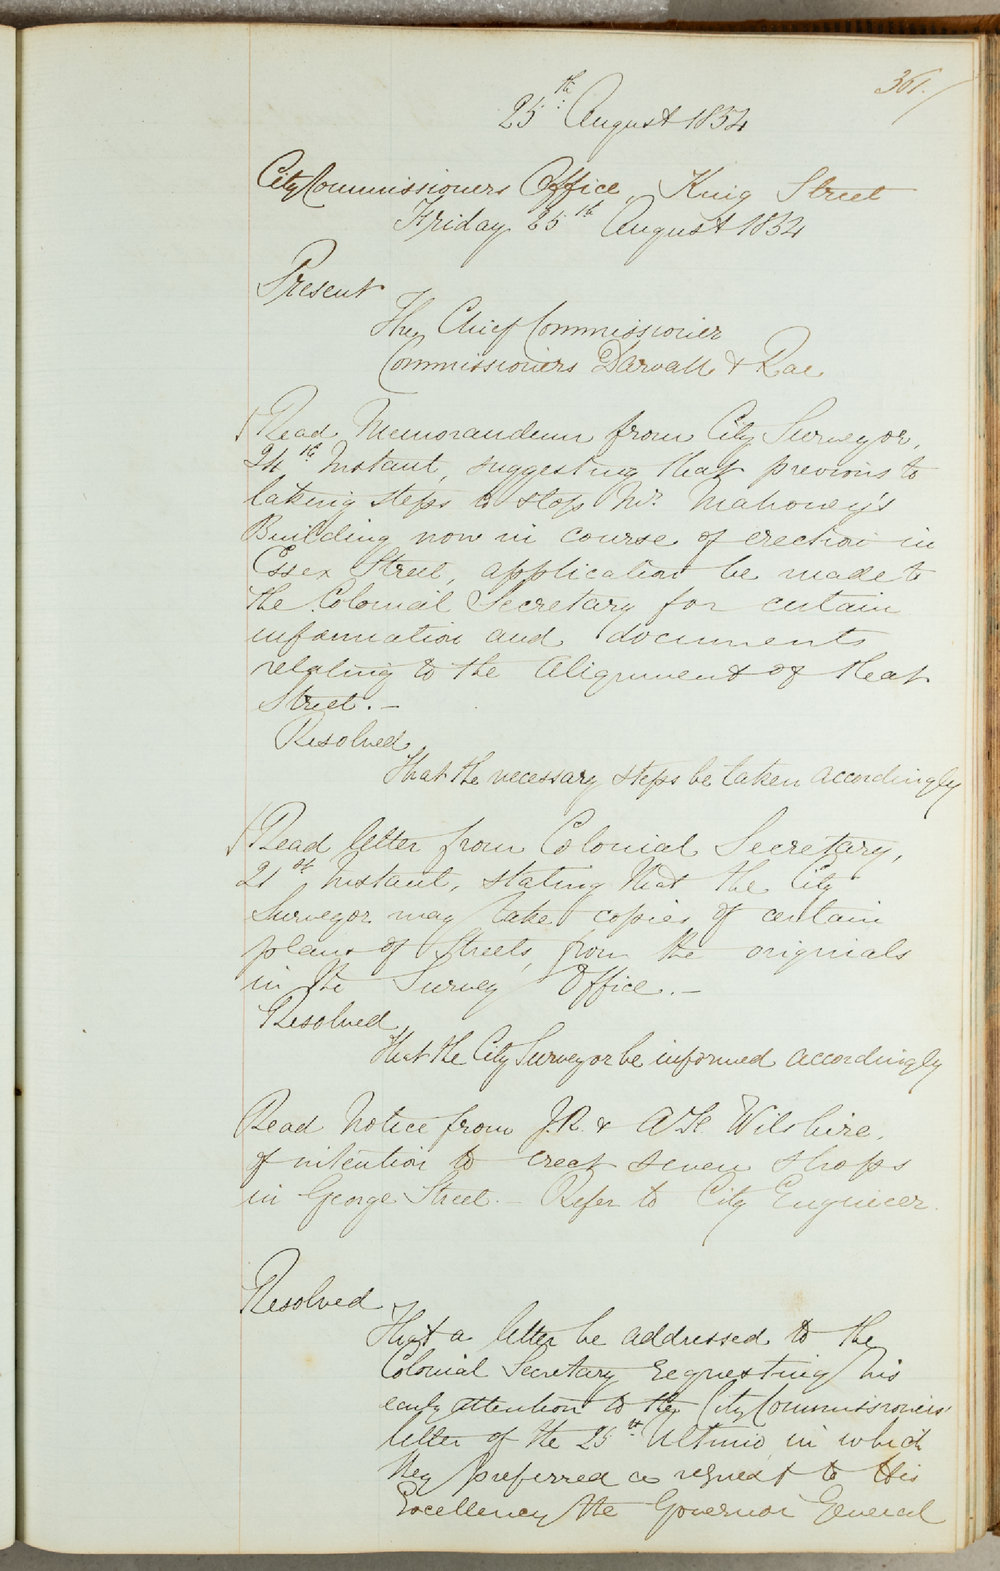 361.
25th August 1854
City Commissioners Office, King Street
Friday 25th August 1854
Present
The Chief Commissioner
Commissioners Darvall & Rae
Read Memorandum from City Surveyor,
24th Instant, suggesting that previous to
taking steps to stop Mr. Mahoney's
Building now in course of erection in
Essex Street, application be made to
the Colonial Secretary for certain
information and documents
relating to the Alignment of that
Street. —
Resolved,
That the necessary steps be taken accordingly
Read letter from Colonial Secretary,
21st Instant, stating that the City
Surveyor may take copies of certain
plans of Streets, from the originals
in the Survey Office. —
Resolved,
That the City Surveyor be informed accordingly
Read Notice from J.R. & A.H. Wilshire,
of intention to erect seven shops
in George Street. — Refer to City Engineer.
Resolved,
That a letter be addressed to the
Colonial Secretary requesting his
early attention to the City Commissioners'
letter of the 25th Ultimo, in which
they preferred a request to His
Excellency the Governor General